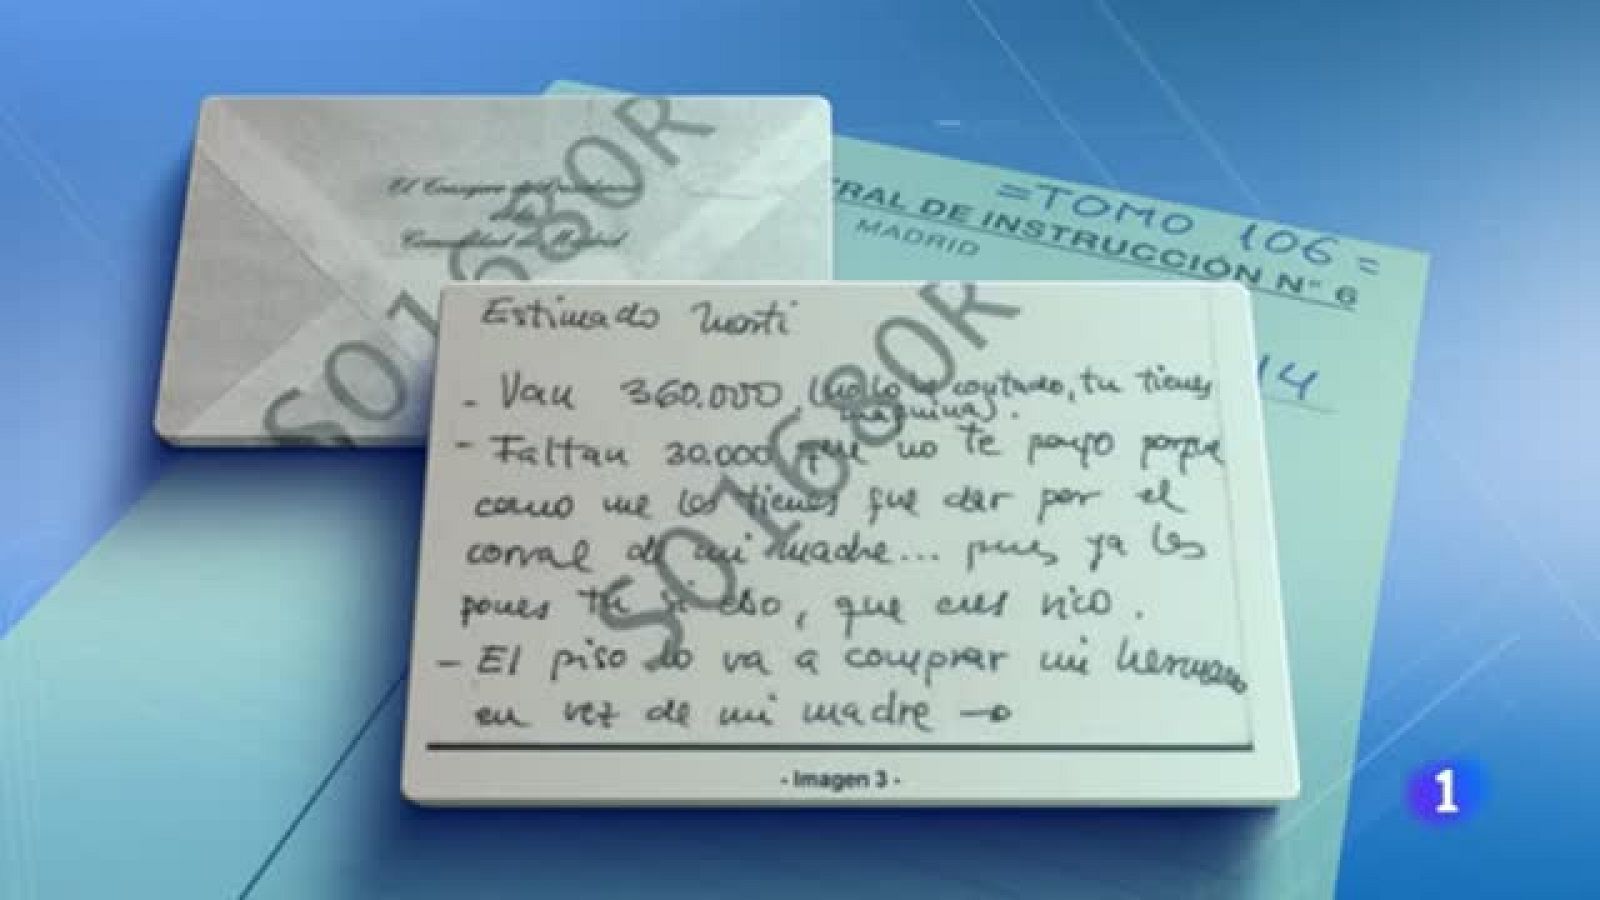 El Consejero de Presidencia
de la
Comunidad de Madrid
SO1680R
=TOMO 106=
TRAL DE INSTRUCCIÓN Nº 6
MADRID
14
Estimado Marti
- Van 360.000, (no lo he contado, tu tienes
maquina).
- Faltan 30.000 que no te pongo porque
como me los tienes que dar por el
corral de mi madre... pues ya los
pones tu y eso, que eres rico.
- El piso lo va a comprar mi hermano
en vez de mi madre →
SO1680R
- Imagen 3 -
1